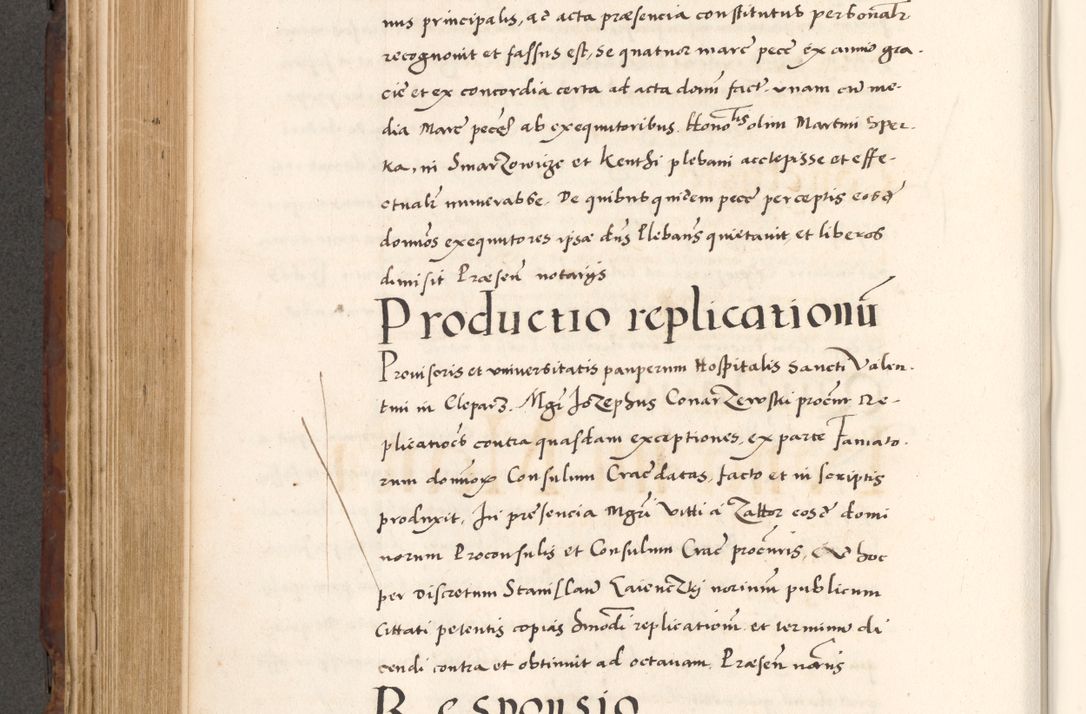 nus principalis, ad acta præsencia constitutus personalr
recognovit et fassus est, se quatuor marc pecc ex anno gra-
cie et ex concordia certa ad acta domi fact. unam cu me-
dia Marc pecc ab exequutoribus Honolis olim Martini Sper-
ka, in Smarzowicze et Kenthi plebani accepisse et effe-
ctualr numerasse. De quibus quidem pecc perceptis eosd
domios exequutores ipse dns Plebans quietavit et liberos
dimisit Præsen notarijs
Productio replicationu
Provisoris et universitatis pauperum Hospitalis Sancti Valen-
tini in Cleparz. Mgr Jozephus Conarzewski procur Re-
plicatioes contra quasdam exceptiones, ex parte Famato-
rum domiox Consulum Crac datas, facto et in scriptis
produxit, In presencia Mgri Vitti a eosd domi
norum Proconsulis et Consulum Crac procuris, hoc
per Discretum Stanislaw norinum publicum
Cittati petentis copias hmodi replicationu et terminu di
cendi contra et obtinuit ad octavam. Præsen noriis
Responsio